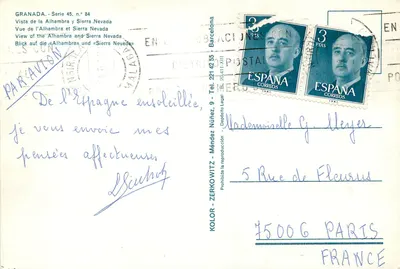 GRANADA. - Serie 45, n.° 84
Vista de la Alhambra y Sierra Nevada
Vue de l'Alhambra et Sierra Nevada
View of the Alhambra and Sierra Nevada
Blick auf die «Alhambra» und «Sierra Nevada»
PAR AVION
De l'Espagne ensoleillée,
je vous envoie mes
pensées affectueuses
KOLOR - ZERKOWITZ - Méndez Núñez, 9 - Tel. 221 42 55 - Barcelona
Depósito Legal
Prohibida la reproducción
3
PTAS
ESPAÑA
CORREOS
3
PTAS
ESPAÑA
CORREOS
Mademoiselle G. Meyer
5 Rue de Fleurus
75006 PARIS
FRANCE